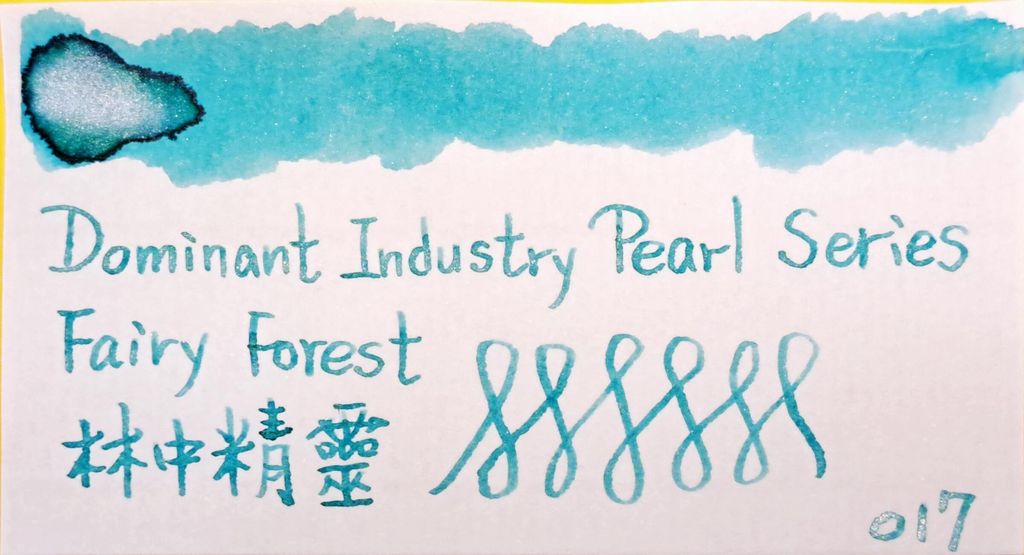 Dominant Industry Pearl Series
Fairy Forest
林中精靈
017